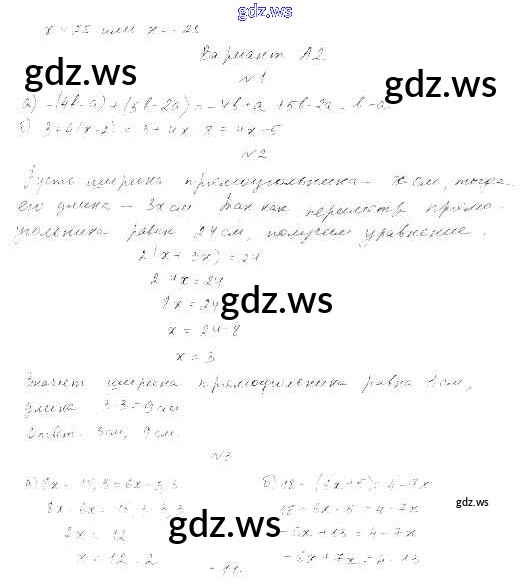 gdz.ws
x = 25 или x = -23
Вариант А2.
gdz.ws
gdz.ws
№1
а) -(4b-a)+(5b-2a) = -4b+a+5b-2a = b-a.
б) 3+4(x-2) = 3+4x-8 = 4x-5
№2
Пусть ширина прямоугольника - x см, тогда
его длина - 3x см. Так как периметр прямо-
угольника равен 24 см, получим уравнение.
2(x+3x) = 24
2·4x = 24
8x = 24
gdz.ws
x = 24:8
x = 3
Значит ширина прямоугольника равна 3 см,
длина 3·3 = 9 см
Ответ. 3 см, 9 см.
№3
а) 8x - 15,3 = 6x - 3,3
8x - 6x = 15,3 - 3,3
2x = 12
x = 12:2
б) 18 - (6x+5) = 4-7x
18 - 6x - 5 = 4 - 7x
-6x + 13 = 4 - 7x
-6x + 7x = 4 - 13
gdz.ws
gdz.ws
- 11.